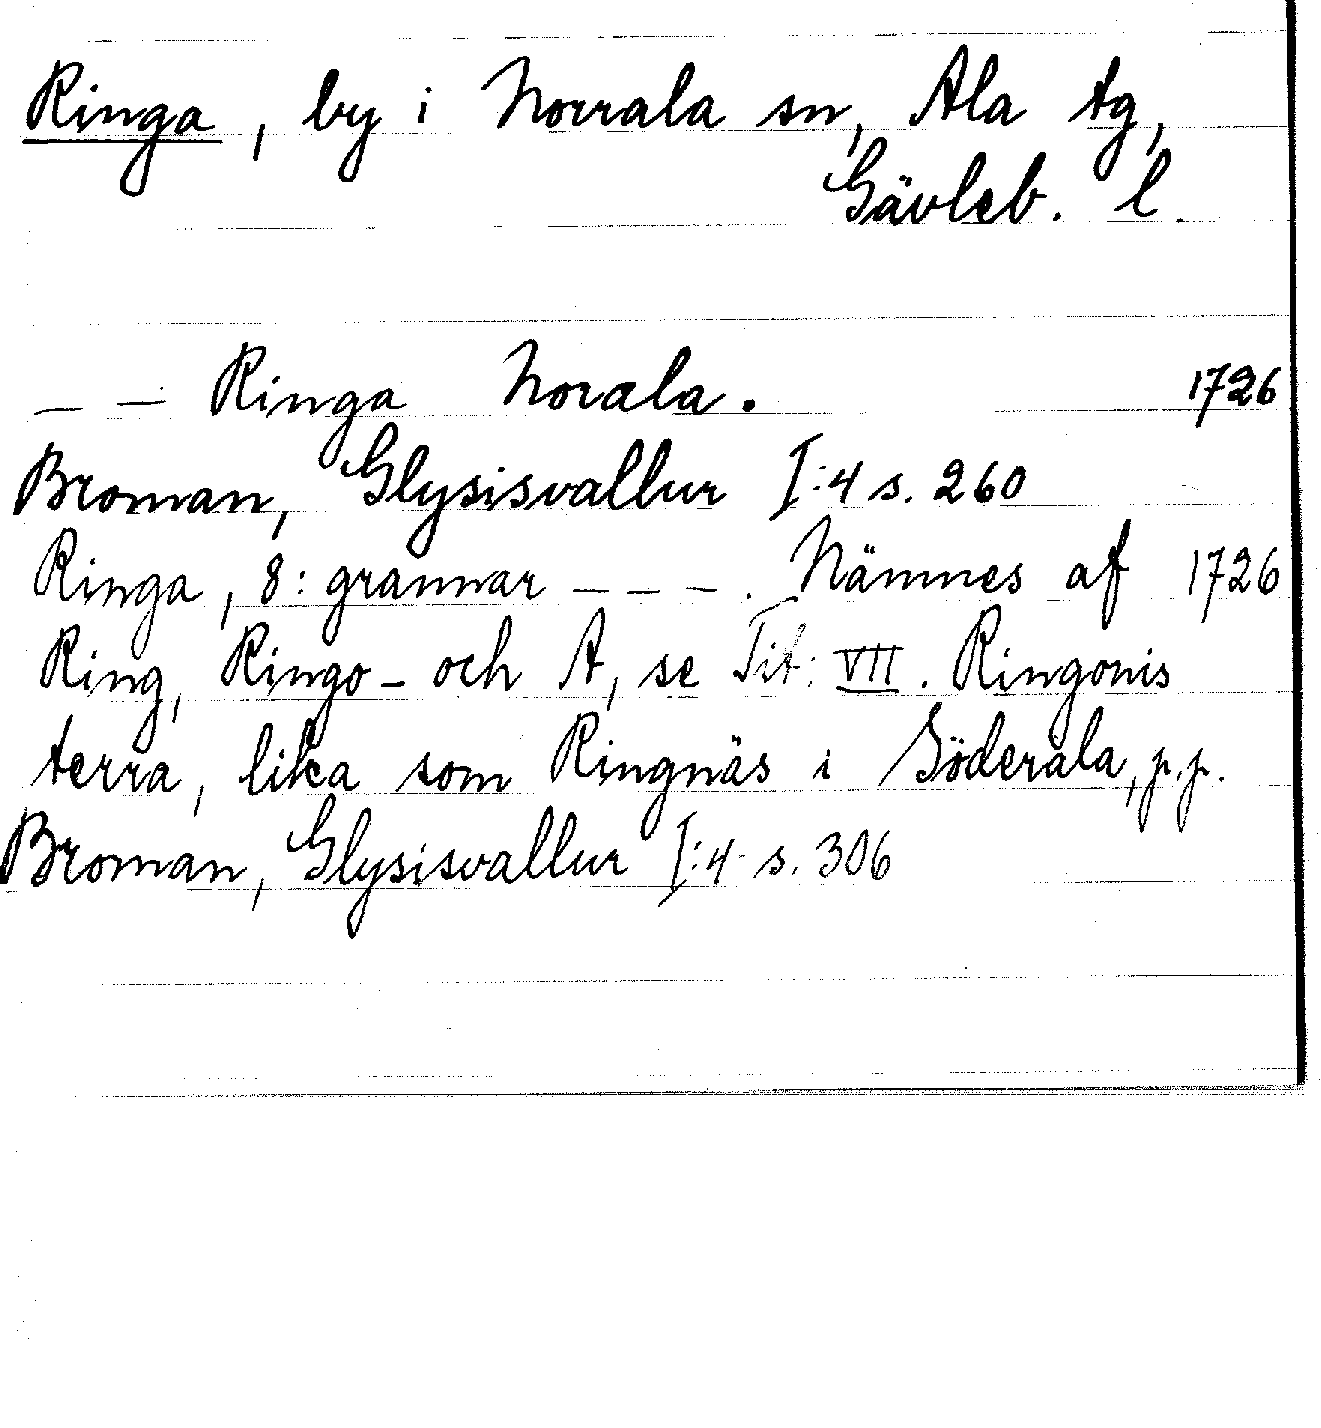 Ringa, by i Norrala sn, Ala tg,
Gävleb. l.
— — Ringa Norala. 1726
Broman, Glysisvallur I:4 s. 260
Ringa, 8: grannar – – – . Nämnes af 1726
Ring, Ringo- och A, se Tit: VII. Ringonis
terra, lika som Ringnäs i Söderala, p.p.
Broman, Glysisvallur I:4 s. 306